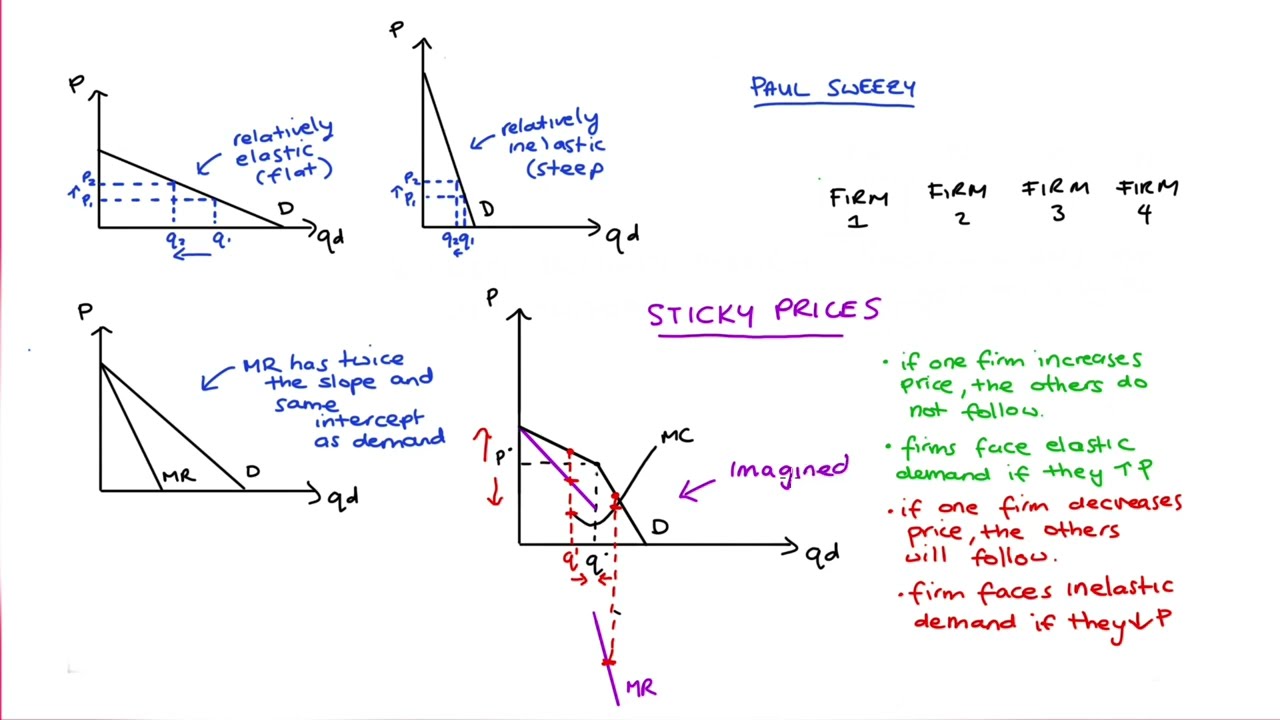 P
relatively
elastic
(flat)
P2
↑ P1
D
q2 q1
qd
←
P
relatively
inelastic
(steep
P2
↑ P1
D
q2 q1
qd
←
PAUL SWEEZY
FIRM FIRM FIRM FIRM
1 2 3 4
P
MR has twice
the slope and
same
intercept
as demand
MR D
qd
STICKY PRICES
P
MC
P*
Imagined
D
q q*
qd
MR
• if one firm increases
price, the others do
not follow.
• firms face elastic
demand if they ↑ P
• if one firm decreases
price, the others
will follow.
• firm faces inelastic
demand if they ↓ P